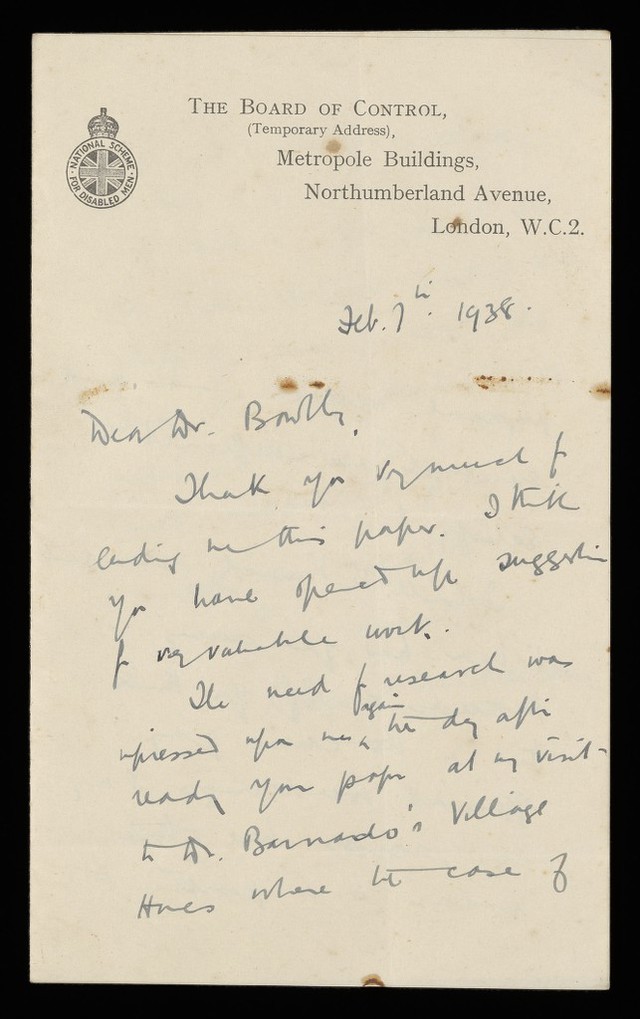 THE BOARD OF CONTROL,
(Temporary Address),
Metropole Buildings,
Northumberland Avenue,
London, W.C.2.
NATIONAL SCHEME
FOR DISABLED MEN
Feb. 7th. 1938.
Dear Dr. Bowlby,
Thank you very much for
lending me this paper. I think
you have opened up suggestions
for very valuable work.
The need for research was
impressed upon me again the day after
reading your paper at my visit
to Dr. Barnardo's Village
Homes where the case of